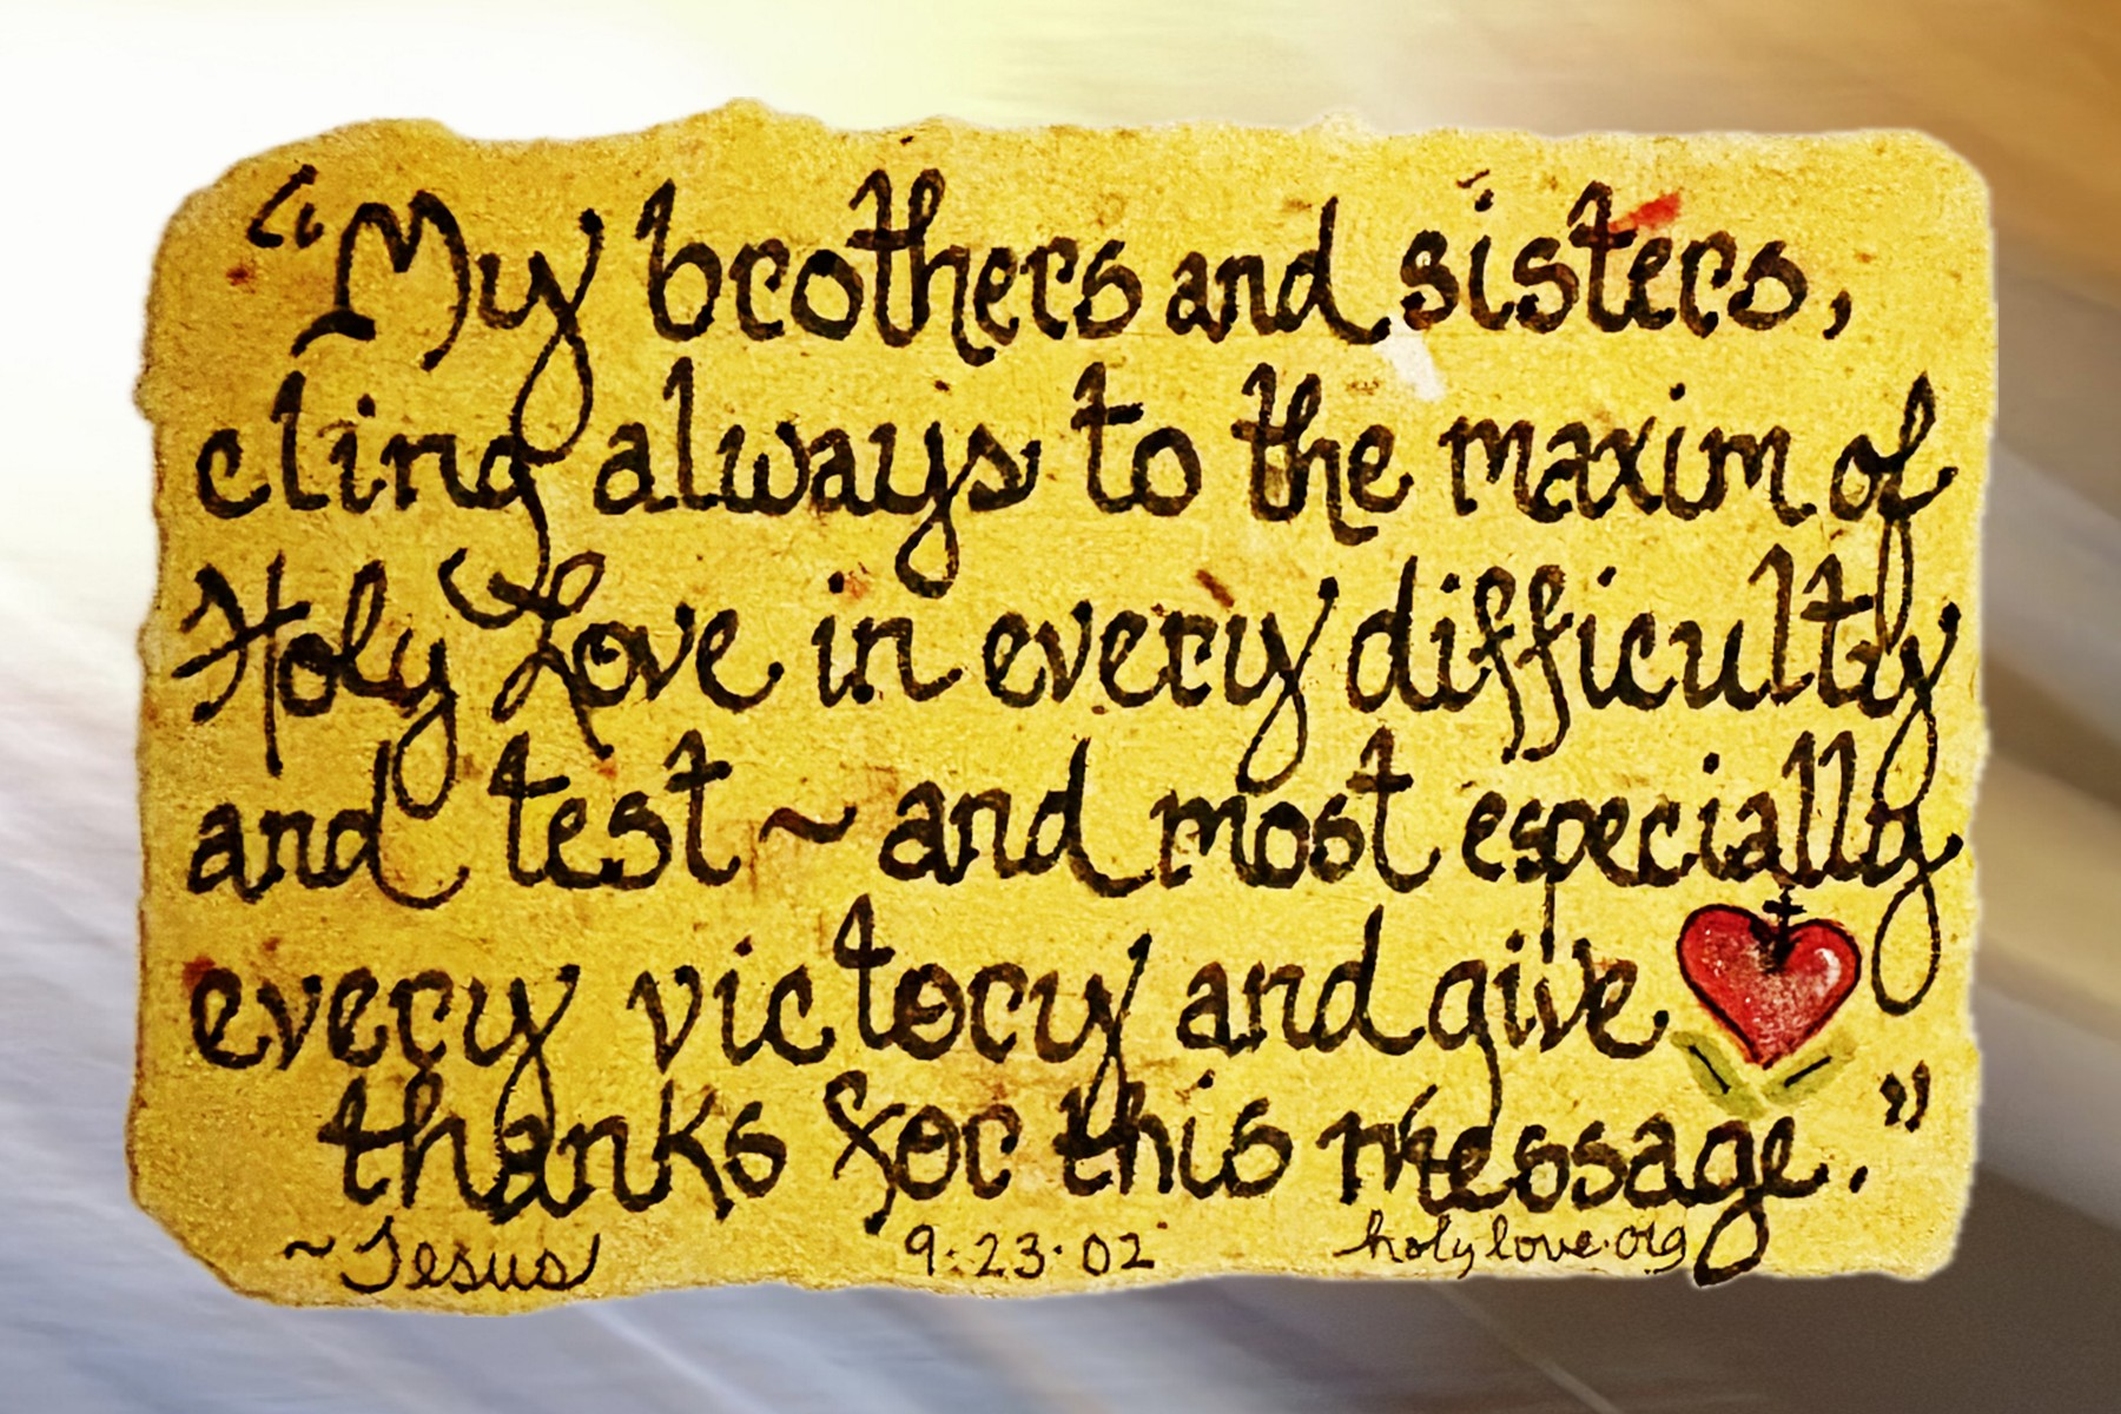 “My brothers and sisters,
cling always to the maxim of
Holy Love in every difficulty
and test ~ and most especially
every victory and give
thanks for this message.”
~Jesus 9·23·02 holylove.org